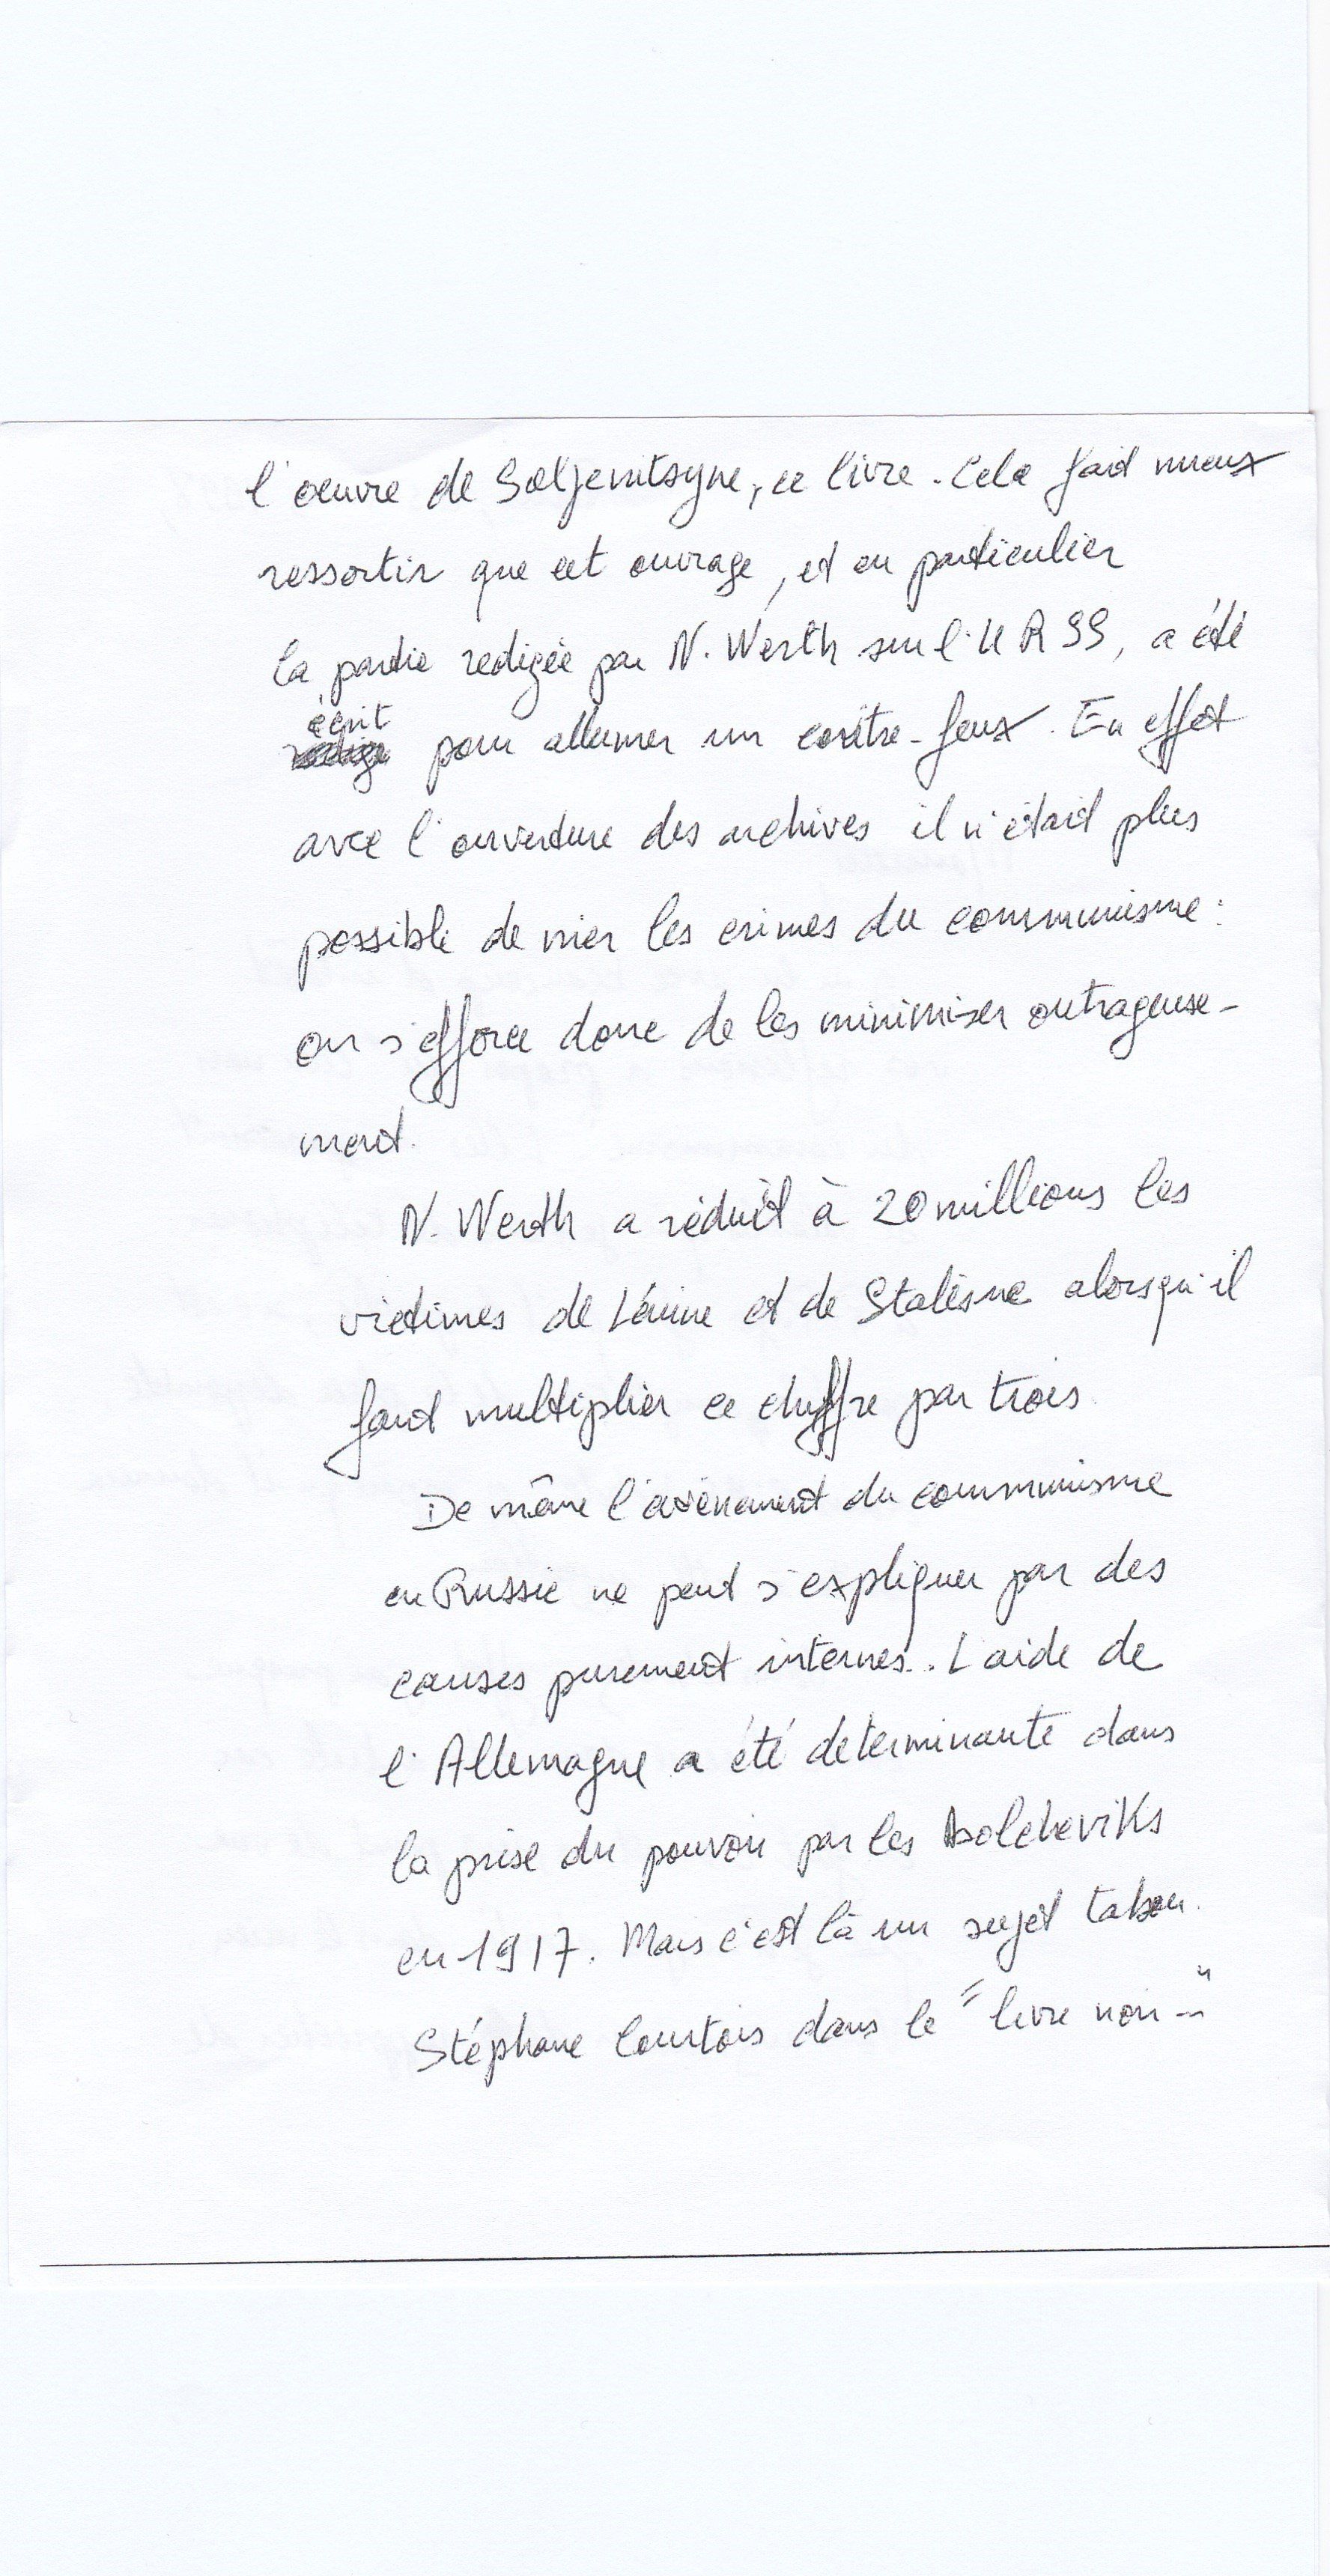 l'oeuvre de Soljenitsyne, ce livre. Cela fait mieux
ressortir que cet ouvrage, et en particulier
la partie redigée par N. Werth sur l'URSS, a été
écrit
pour allumer un contre-feux. En effet
avec l'ouverture des archives il n'était plus
possible de nier les crimes du communisme :
on s'efforce donc de les minimiser outrageuse-
ment.
N. Werth a réduit à 20 millions les
victimes de Lénine et de Staline alorsqu'il
faut multiplier ce chiffre par trois.
De même l'avènement du communisme
en Russie ne peut s'expliquer par des
causes purement internes.. L'aide de
l'Allemagne a été déterminante dans
la prise du pouvoir par les bolcheviKs
en 1917. Mais c'est là un sujet tabou.
Stéphane Courtois dans le "livre noir..."